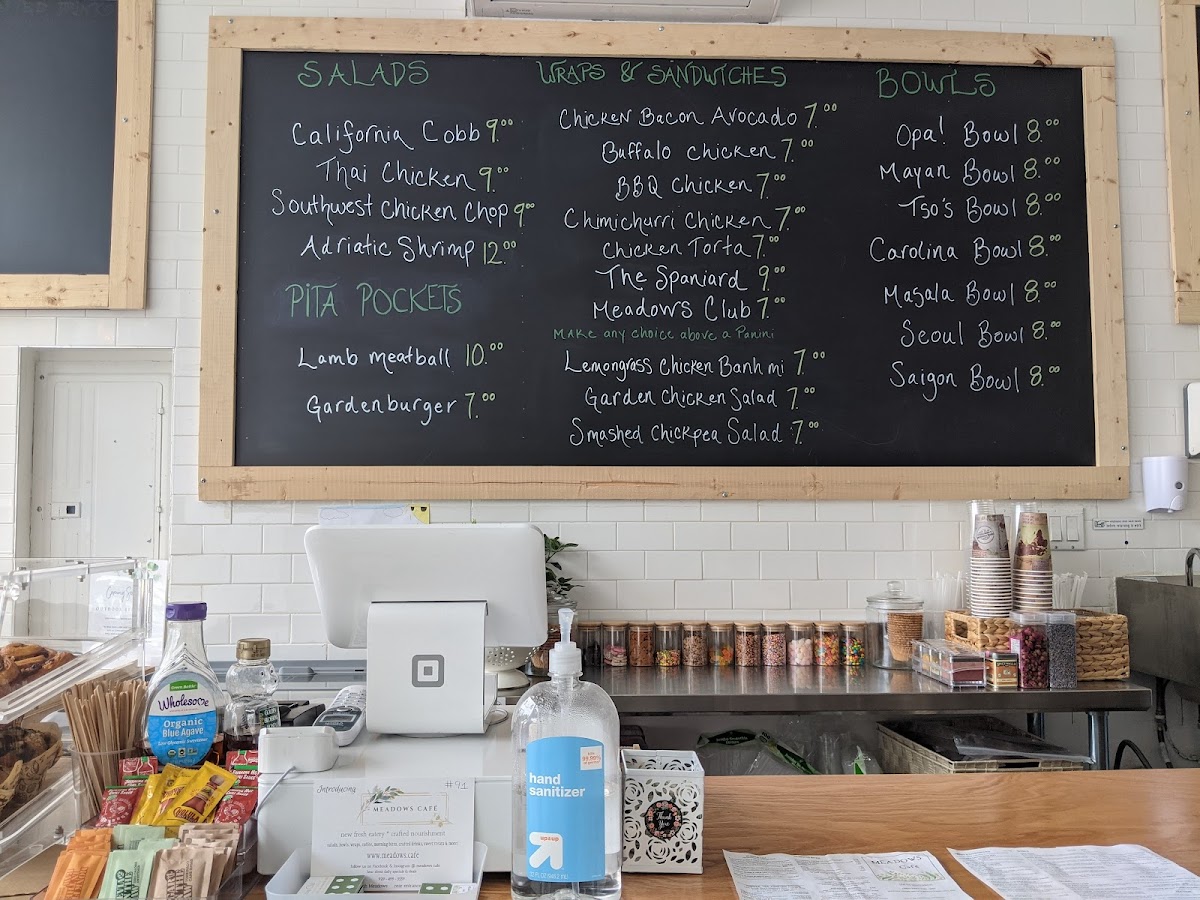 SALADS
California Cobb 9.00
Thai Chicken 9.00
Southwest Chicken Chop 9.00
Adriatic Shrimp 12.00
PITA POCKETS
Lamb meatball 10.00
Gardenburger 7.00
WRAPS & SANDWICHES
Chicken Bacon Avocado 7.00
Buffalo chicken 7.00
BBQ Chicken 7.00
Chimichurri Chicken 7.00
Chicken Torta 7.00
The Spaniard 9.00
Meadows Club 7.00
Make any choice above a Panini
Lemongrass Chicken Banh mi 7.00
Garden Chicken Salad 7.00
Smashed Chickpea Salad 7.00
BOWLS
Opa! Bowl 8.00
Mayan Bowl 8.00
Tso's Bowl 8.00
Carolina Bowl 8.00
Masala Bowl 8.00
Seoul Bowl 8.00
Saigon Bowl 8.00
Wholesome
Organic
Blue Agave
Introducing
#91
MEADOWS CAFÉ
new fresh eatery * crafted nourishment
www.meadows.cafe
hand
sanitizer
up&up
Thank
You
MEADOWS
Café